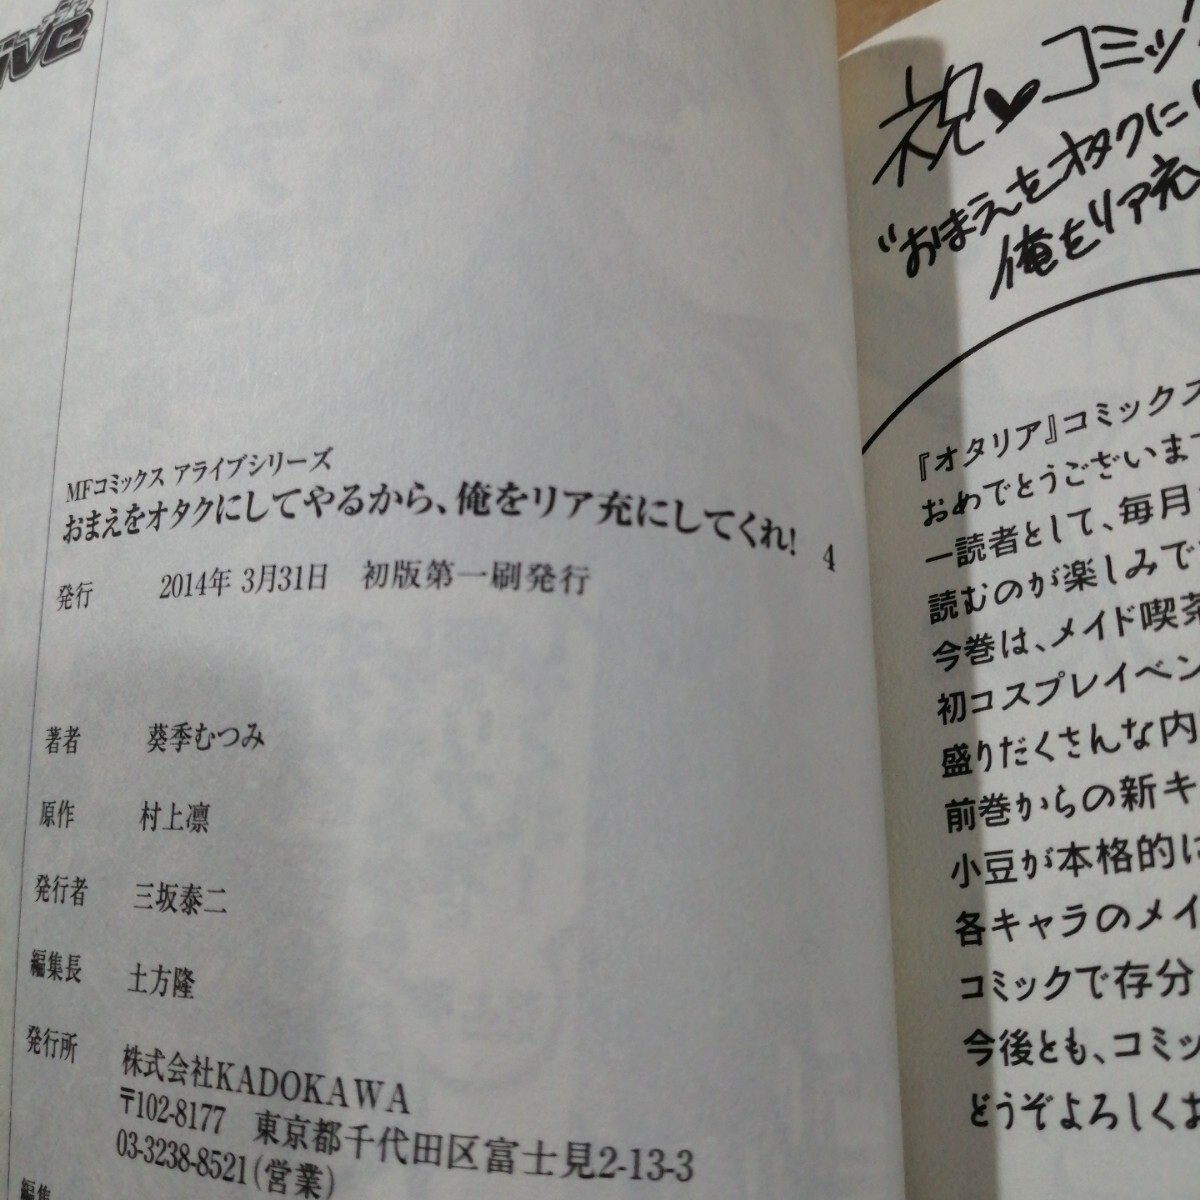 ive
MFコミックス アライブシリーズ
おまえをオタクにしてやるから、俺をリア充にしてくれ! 4
発行 2014年 3月31日 初版第一刷発行
著者 葵季むつみ
原作 村上凛
発行者 三坂泰二
編集長 土方隆
発行所 株式会社KADOKAWA
〒102-8177 東京都千代田区富士見2-13-3
03-3238-8521(営業)
編集
祝♥コミッ
"おまえをオタクに
俺をリア充
『オタリア』コミックス
おめでとうございます
一読者として、毎月
読むのが楽しみで
今巻は、メイド喫茶
初コスプレイベン
盛りだくさんな内
前巻からの新キ
小豆が本格的に
各キャラのメイ
コミックで存分
今後とも、コミッ
どうぞよろしくお